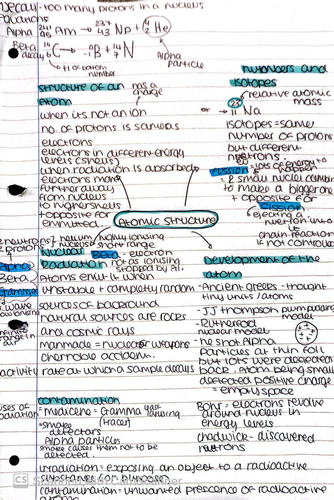 Decay - too many protons in a nucleus
equations
Alpha 241 95 Am → 237 93 Np + 4 2 He
Beta decay 14 6 C → 0 -1 β + 14 7 N
Alpha particle
↳ +1 of atom number
structure of an atom
has a charge
when its not an ion
no. of protons is same as
electrons
electrons in different energy
levels (shells)
when radiation is absorbed,
electrons move
further away
from nucleus
to higher shells
↳ opposite for
emitted
numbers and
isotopes
relative atomic
mass
23 11 Na
isotopes = same
number of protons
but different
neutrons
fusion
lots of energy to happen
2 small nuclei combine
to make a bigger one
↳ opposite for
fission
ejecting a
neutron into it
chain reaction
is not controlled
Atomic structure
2 neutrons
2 protons
helium nucleus
highly ionising
short range
Nuclear
Radiation
Beta - electron
not as ionising
stopped by Al.
Alpha
Beta
Gamma
Atoms emit is when
unstable + completely random
low ionising
sources of background
natural sources are rocks
and cosmic rays
manmade = nuclear weapons
chernobyl accident.
activity rate at which a sample decays
Development of the
atom
- Ancient greeks - thought
tiny units/atoms
- JJ Thompson plum pudding
model
- Rutherford
nuclear model
↳ he shot Alpha
Particles at thin foil
but lots were deflected
back. atom being small
deflected positive charge
= empty space
Bohr = electrons revolve
around nucleus in
energy levels
chadwick - discovered
neutrons
contamination
uses of radiation
- medicine = Gamma
(tracer)
least ionising
- smoke
detectors
Alpha particles
smoke causes them not to be
detected.
irradiation = exposing an object to a radioactive
contamination = unwanted presence of radioactive
CS